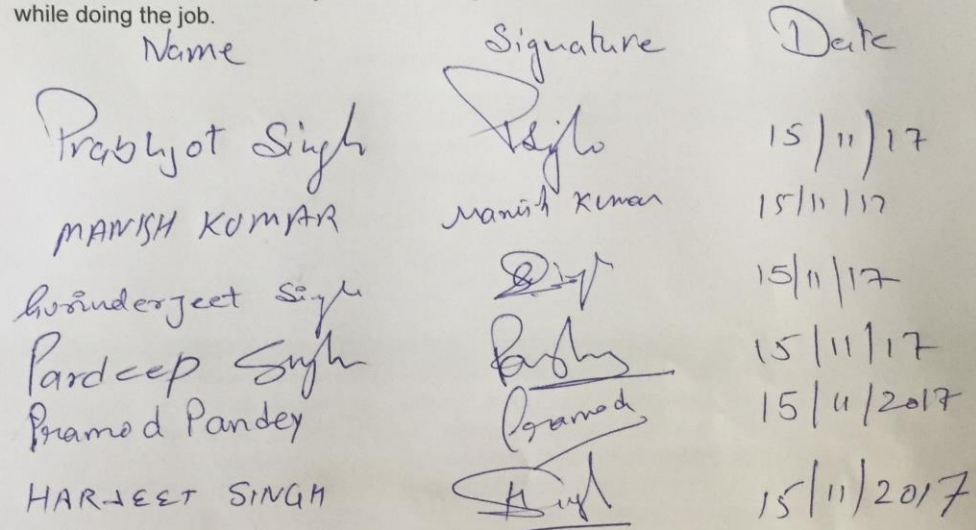 while doing the job.
Name Signature Date
Prabhjot Singh 15/11/17
MANISH KUMAR Manish Kumar 15/11/17
Gurinderjeet Singh 15/11/17
Pardeep Singh 15/11/17
Pramod Pandey Pramod 15/11/2017
HARJEET SINGH 15/11/2017